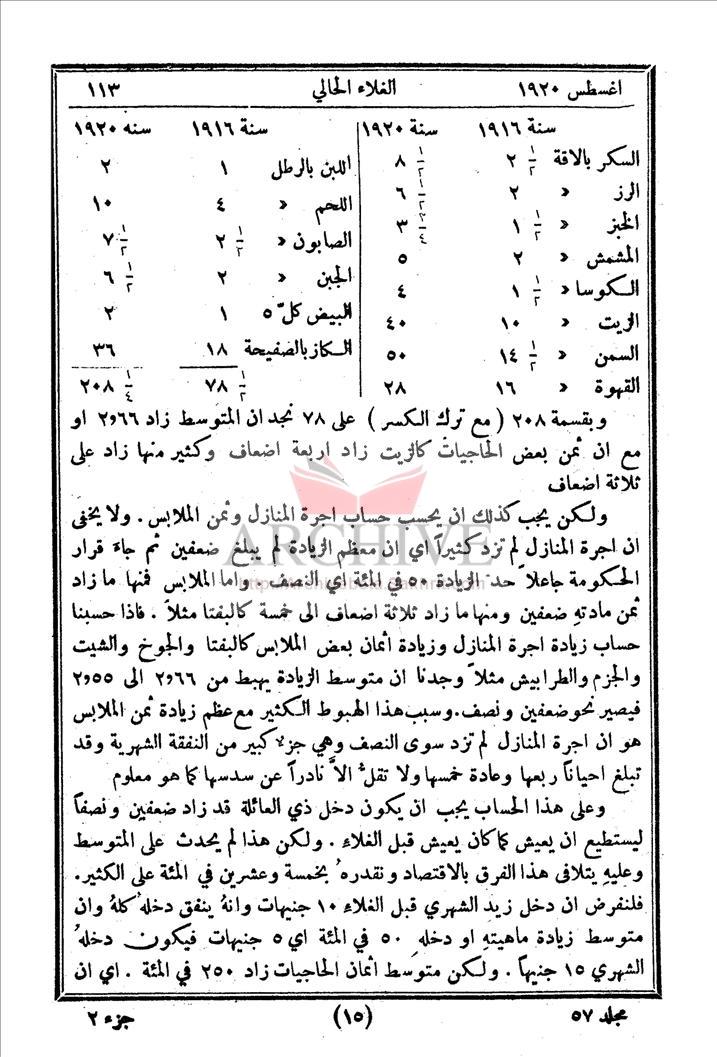 اغسطس ١٩٢٠ الغلاء الحالي ١١٣
سنة ١٩١٦ سنة ١٩٢٠
السكر بالاقة ٢ ١/٢ ٨ ١/٢
الرز « ٢ ٦ ١/٢
الخبز « ١ ١/٢ ٣ ٣/٤
المشمش « ٢ ٥
الكوسا « ١ ١/٢ ٤
الزيت « ١٠ ٤٠
السمن « ١٤ ١/٢ ٥٠
القهوة « ١٦ ٢٨
سنة ١٩١٦ سنه ١٩٢٠
اللبن بالرطل ١ ٢
اللحم « ٤ ١٠
الصابون « ٢ ١/٢ ٧ ١/٢
الجبن « ٢ ٦ ١/٢
البيض كلّ ٥ ١ ٢
الكاز بالصفيحة ١٨ ٣٦
٧٨ ١/٢ ٢٠٨ ١/٤
وبقسمة ٢٠٨ ( مع ترك الكسر ) على ٧٨ نجد ان المتوسط زاد ٢٫٦٦ او
مع ان ثمن بعض الحاجيات كالزيت زاد اربعة اضعاف وكثير منها زاد على
ثلاثة اضعاف
ولكن يجب كذلك ان يحسب حساب اجرة المنازل وثمن الملابس . ولا يخفى
ان اجرة المنازل لم تزد كثيراً اي ان معظم الزيادة لم يبلغ ضعفين ثم جاءَ قرار
الحكومة جاعلاً حد الزيادة ٥٠ في المئة اي النصف . واما الملابس فمنها ما زاد
ثمن مادتهِ ضعفين ومنها ما زاد ثلاثة اضعاف الى خمسة كالبفتا مثلاً . فاذا حسبنا
حساب زيادة اجرة المنازل وزيادة أثمان بعض الملابس كالبفتا والجوخ والشيت
والجزم والطرابيش مثلاً وجدنا ان متوسط الزيادة يهبط من ٢٫٦٦ الى ٢٫٥٥
فيصير نحو ضعفين ونصف . وسبب هذا الهبوط الكثير مع عظم زيادة ثمن الملابس
هو ان اجرة المنازل لم تزد سوى النصف وهي جزءٌ كبير من النفقة الشهرية وقد
تبلغ احياناً ربعها وعادة خمسها ولا تقلُّ الاَّ نادراً عن سدسها كما هو معلوم
وعلى هذا الحساب يجب ان يكون دخل ذي العائلة قد زاد ضعفين ونصفاً
ليستطيع ان يعيش كما كان يعيش قبل الغلاءِ . ولكن هذا لم يحدث على المتوسط
وعليهِ يتلافى هذا الفرق بالاقتصاد ونقدرهُ بخمسة وعشرين في المئة على الكثير .
فلنفرض ان دخل زيد الشهري قبل الغلاءِ ١٠ جنيهات وانهُ ينفق دخلهُ كلهُ وان
متوسط زيادة ماهيتهِ او دخلهِ ٥٠ في المئة اي ٥ جنيهات فيكون دخلهُ
الشهري ١٥ جنيهاً . ولكن متوسط أثمان الحاجيات زاد ٢٥٠ في المئة . اي ان
مجلد ٥٧ (١٥) جزء ٢
ARCHIVE